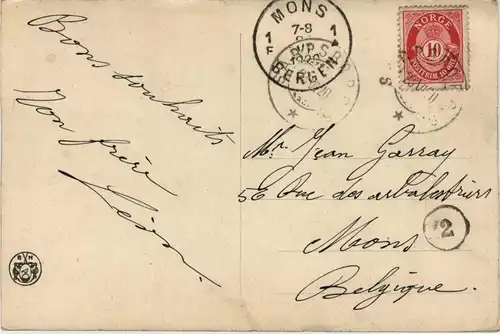 Bons souhaits
Ton frère
Léon.
MONS
7-8
1 1
BERGEN
NORGE
10
POSTFRIM. 10 ØRE
Mr. Jean Garray
5E Rue des arbalestriers
Mons
Belgique.
2
B H